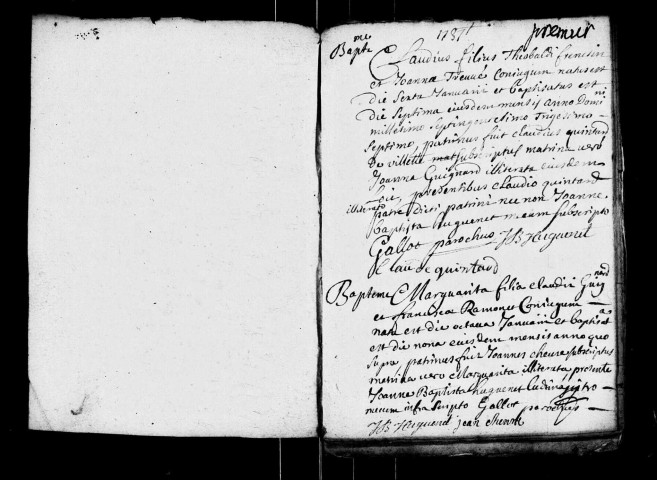 1737 premier
Bapteme
Claudius filius Theobaldi
et Joanna Coniugum natus est
die Sexta Januarii et baptisatus est
die Septima eiusdem mensis anno Domini
millesimo Septingentesimo trigesimo
Septimo, patrinus fuit claudius quintard
de villette subscriptus matrina vero
Joanna Guignard illiterata eiusdem
loci, presentibus claudio quintard
illiterato patre dicti patrini nec non Joanne
baptista huguenet mecum subscripto
Gallot parochus JB Huguenet
Claude quintard
Bapteme Marguarita filia claudii Guignard
et francisca Ramonet Coniugum
nata est die octava Januarii et baptisata
est die nona eiusdem mensis anno quo
supra patrinus fuit Joannes subscriptus
matrina vero Marguarita illiterata, presente
Joanne Baptista huguenet ludimagistro
mecum infra Scripto Gallot parochus
JB Huguenet jean